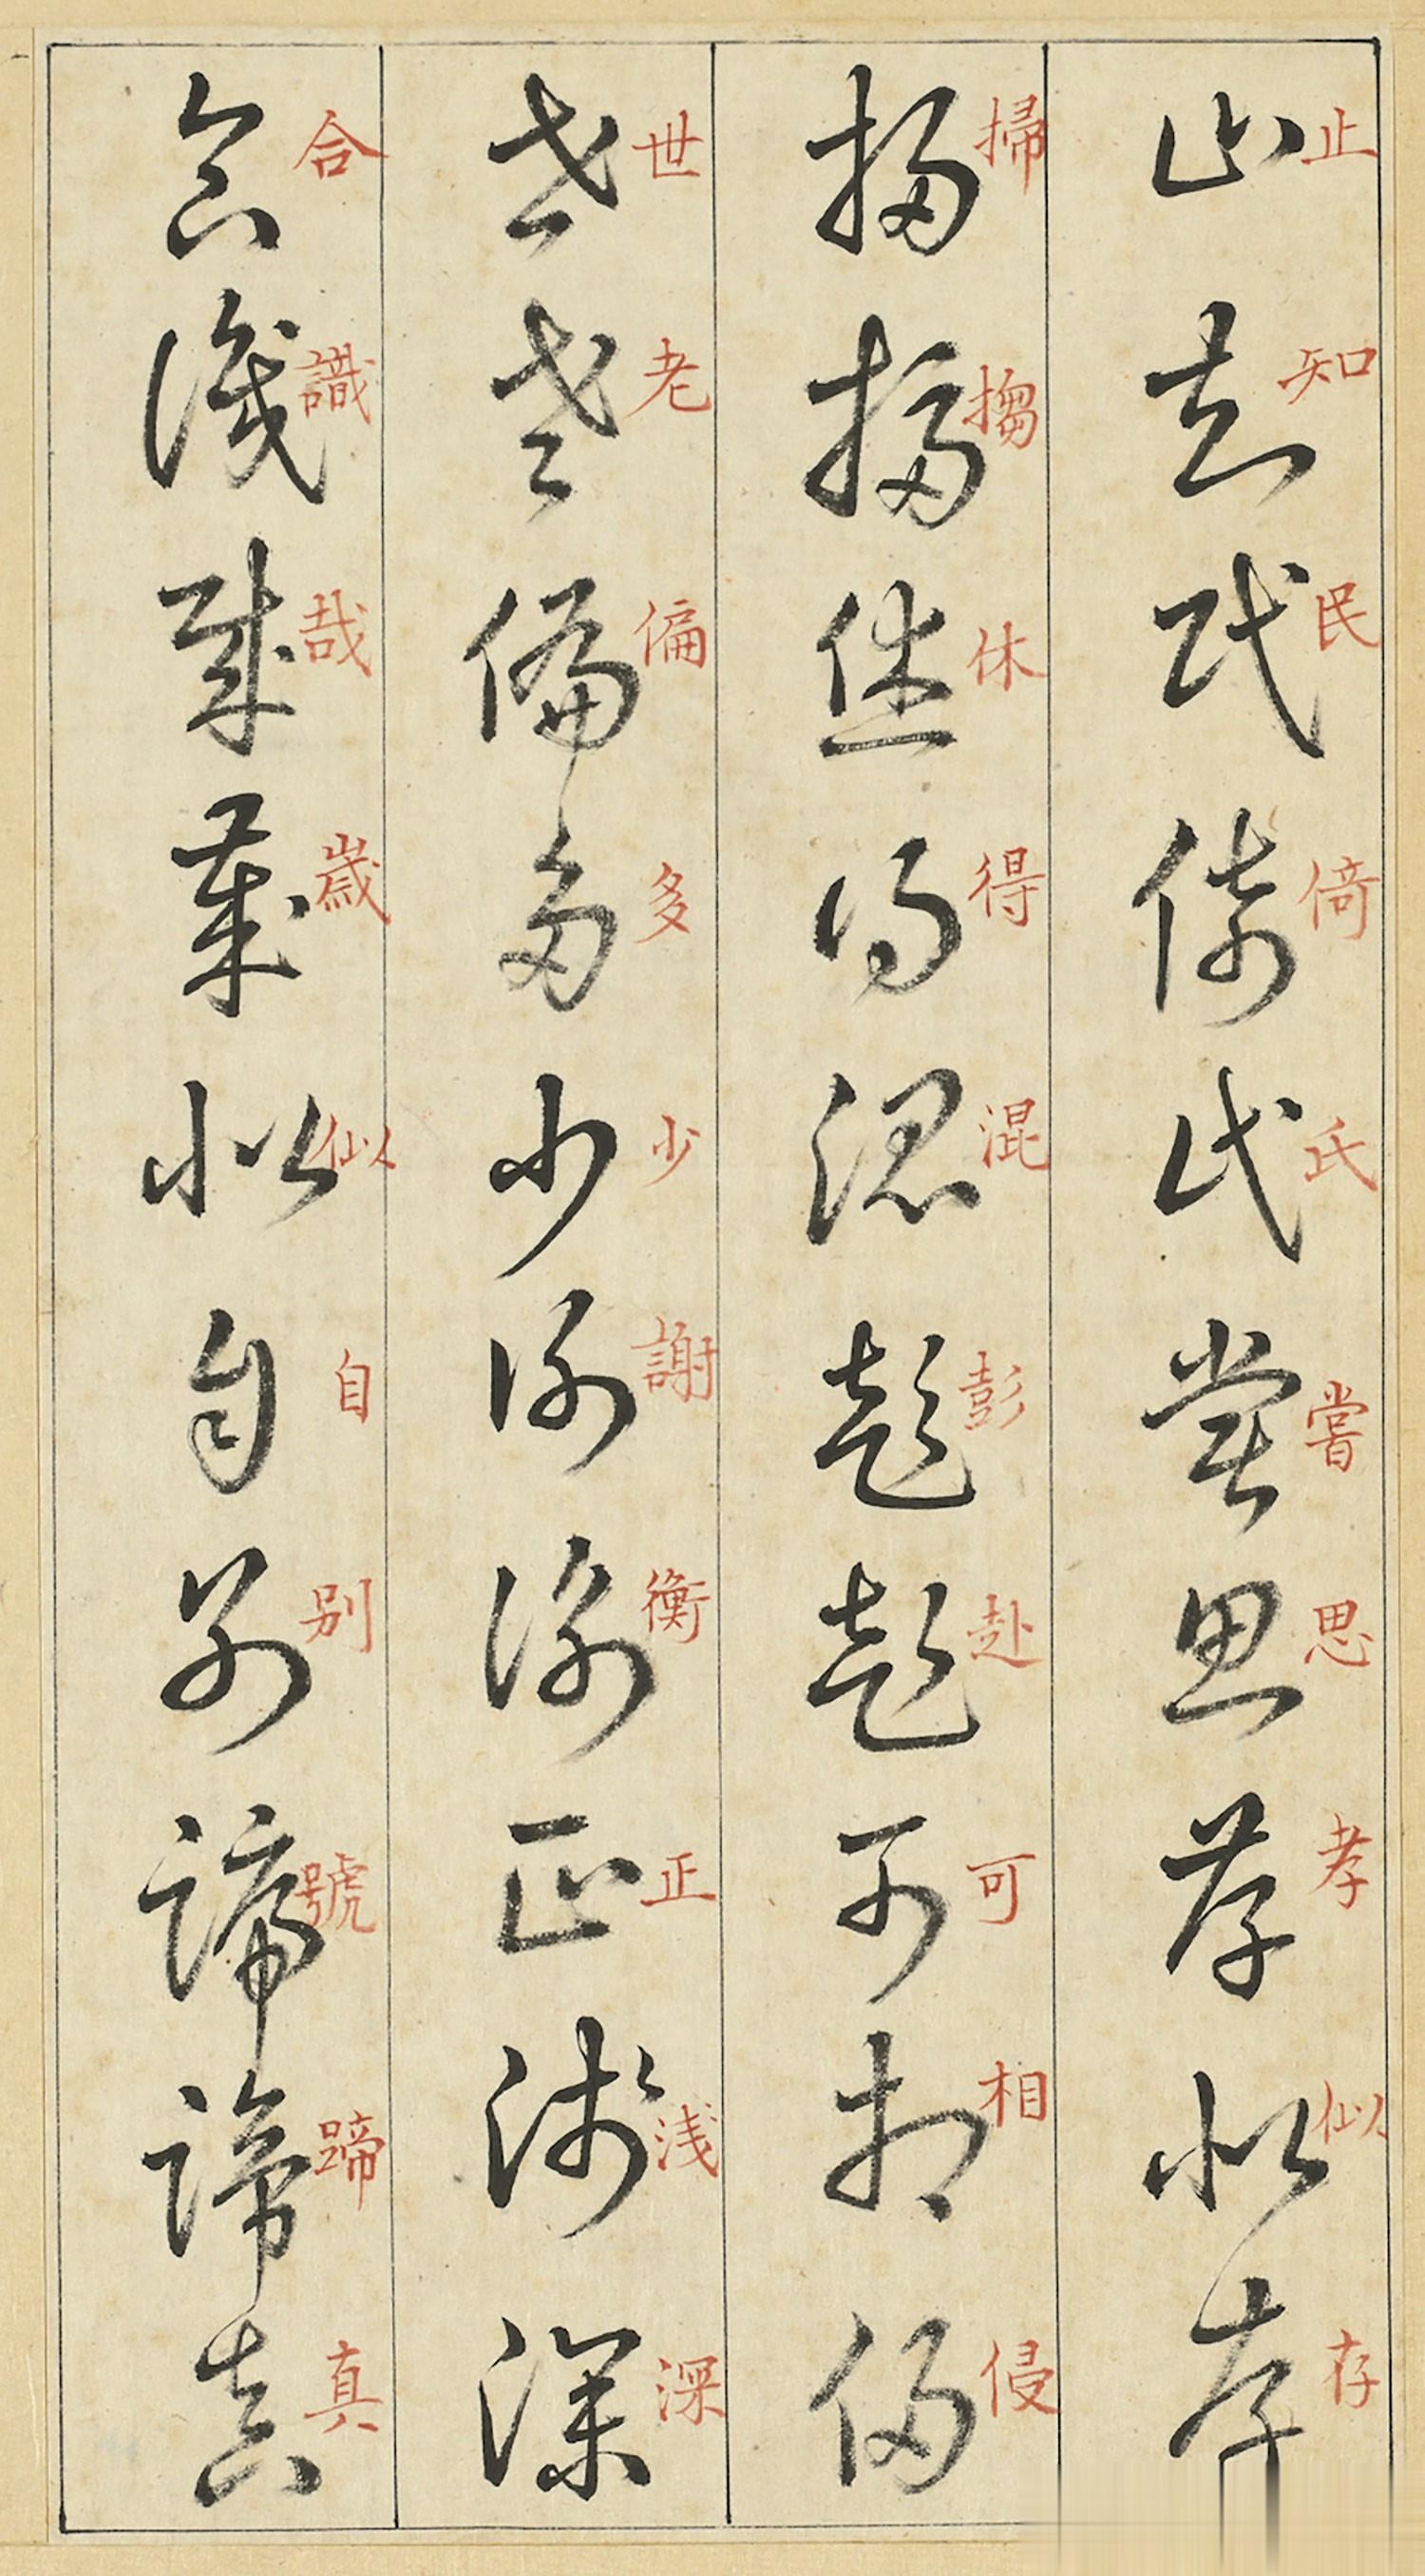 止知民倚氏嘗思孝似存
掃搊休得混彭赴可相侵
世老偏多少謝衡正浅深
合識哉歳似自别號蹄真